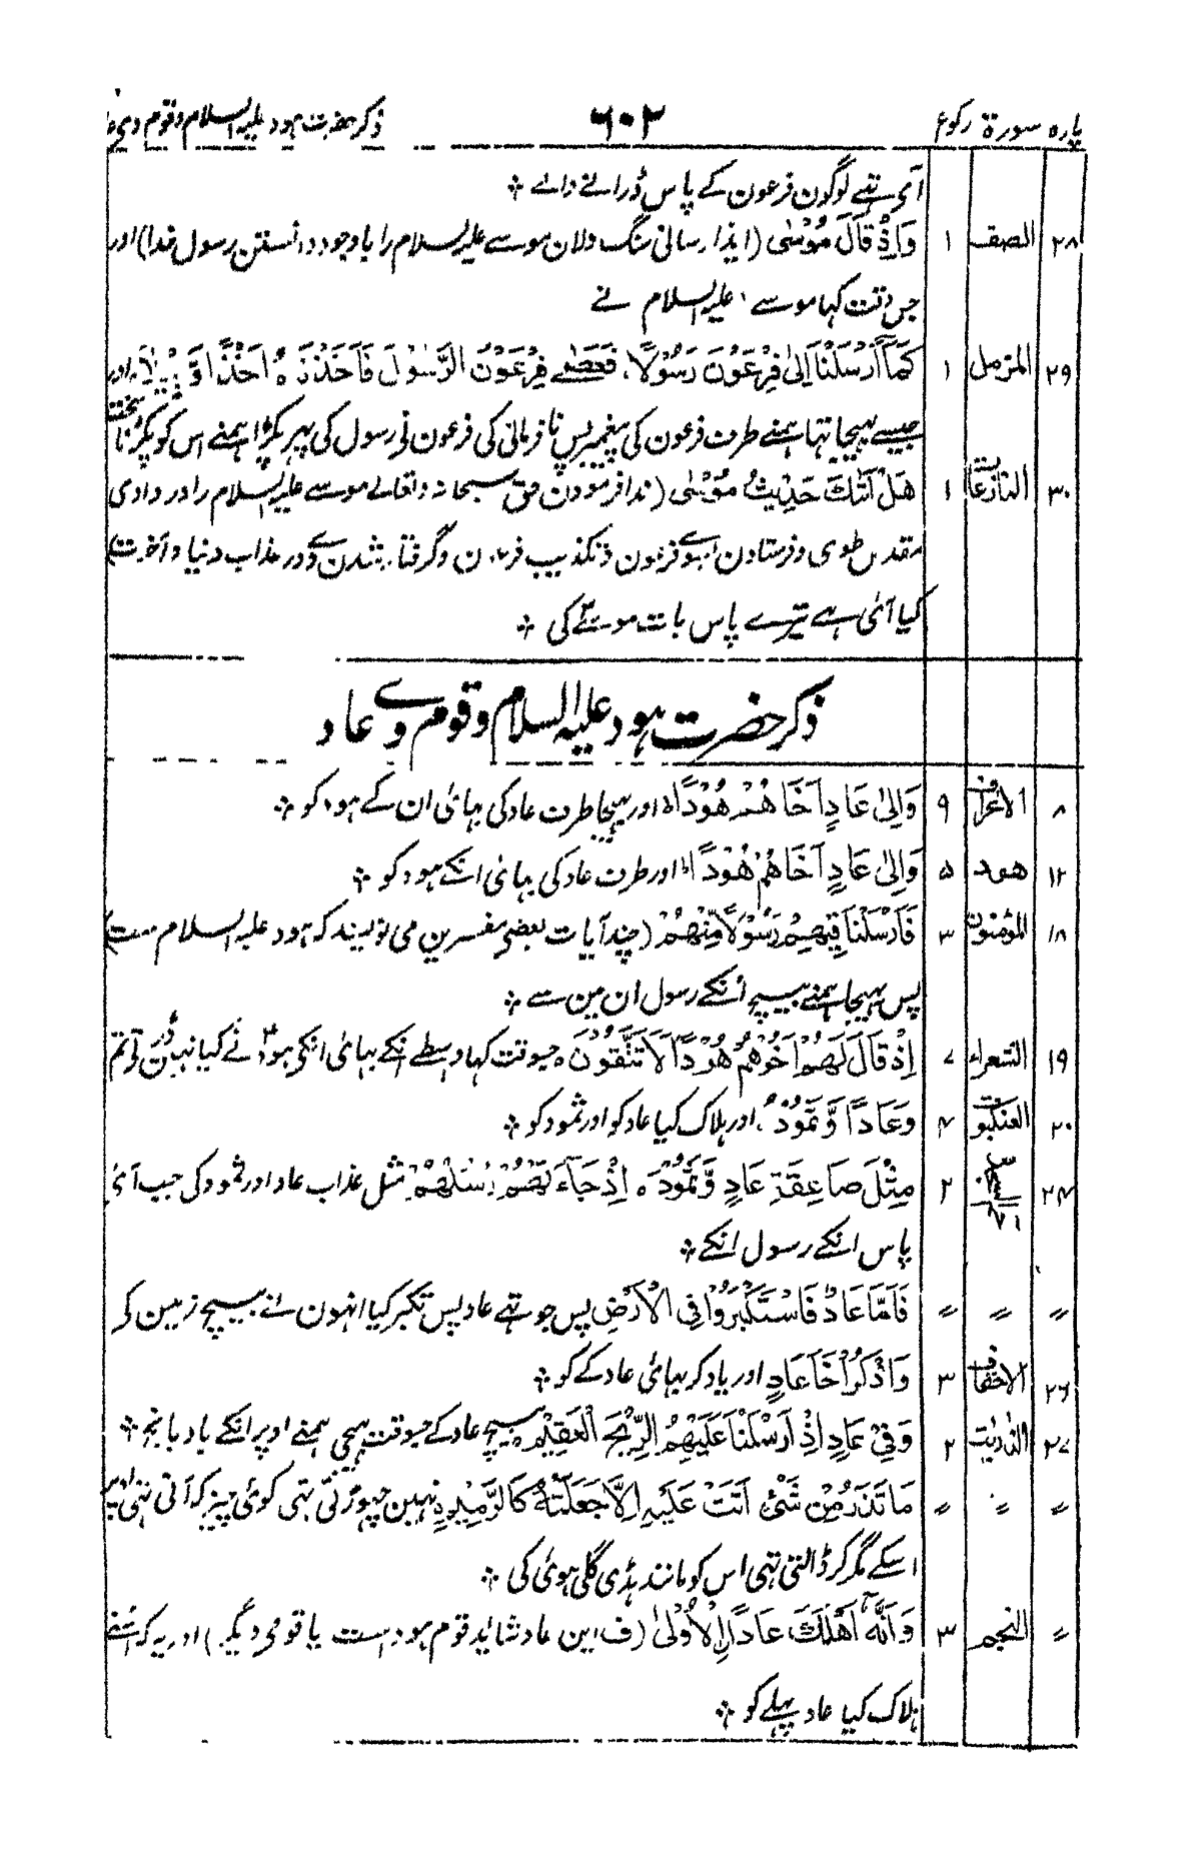 پارہ سورۃ رکوع ۶۰۲ ذکر حضرت ہود علیہ السلام وقوم وی
آئے تہے لوگون فرعون کے پاس ڈرانے والے ÷
۲۸ الصف ۱ وَاِذْ قَالَ مُوْسٰی (ایذا رسانی سنگ دلان موسے علیہ السلام را باوجود دانستن رسول خدا) اور
جس وقت کہا موسے علیہ السلام نے
۲۹ المزمل ۱ كَمَآ اَرْسَلْنَا اِلٰی فِرْعَوْنَ رَسُوْلًا، فَعَصٰے فِرْعَوْنُ الرَّسُوْلَ فَاَخَذْنٰهُ اَخْذًا وَّبِیْلًا، اور
جیسے بہیجا تہا ہمنے طرف فرعون کی پیغمبر پس نافرمانی کی فرعون نے رسول کی پہر پکڑا ہمنے اس کو پکڑنا سخت
۳۰ النازعات ۱ هَلْ اَتٰكَ حَدِیْثُ مُوْسٰی (ندا فرمودن حق سبحانہ وتعالے موسے علیہ السلام را در وادی
مقدس طوی وفرستادن بسوے فرعون وتکذیب فرعون وگرفتار شدن وے در عذاب دنیا وآخرت)
کیا آئی ہے تیرے پاس بات موسےٰ کی ÷
ذکر حضرت ہود علیہ السلام وقوم وے عاد
۸ الاعراف ۹ وَاِلٰی عَادٍ اَخَاهُمْ هُوْدًا ہ اور بہیجا طرف عاد کی بہائی ان کے ہود کو ÷
۱۲ هود ۵ وَاِلٰی عَادٍ اَخَاهُمْ هُوْدًا اور طرف عاد کی بہائی انکے ہود کو ÷
۱۸ المؤمنون ۳ فَاَرْسَلْنَا فِیْهِمْ رَسُوْلًا مِّنْهُمْ (چند آیات بعضی مفسرین می نویسند کہ ہود علیہ السلام ست)
پس بہیجا ہمنے بیچ انکے رسول ان مین سے ÷
۱۹ الشعراء ۷ اِذْ قَالَ لَهُمْ اَخُوْهُمْ هُوْدٌ اَلَا تَتَّقُوْنَ ہ جسوقت کہا واسطے انکے بہائی انکی ہود نے کیا نہین ڈرتے تم
۲۰ العنکبوت ۴ وَعَادًا وَّثَمُوْدَ، اور ہلاک کیا عاد کو اور ثمود کو ÷
۲۴ السجدۃ ۲ مِثْلَ صَاعِقَةِ عَادٍ وَّثَمُوْدَ ہ اِذْ جَآءَتْهُمُ رُسُلُهُمْ مثل عذاب عاد اور ثمود کی جب آئے
پاس انکے رسول انکے ÷
〃 〃 〃 فَاَمَّا عَادٌ فَاسْتَكْبَرُوْا فِی الْاَرْضِ پس جو تہے عاد پس تکبر کیا انہون نے بیچ زمین کے
۲۶ الاحقاف ۳ وَاذْكُرْ اَخَا عَادٍ اور یاد کر بہائی عاد کے کو ÷
۲۷ الذاریت ۲ وَفِیْ عَادٍ اِذْ اَرْسَلْنَا عَلَیْهِمُ الرِّیْحَ الْعَقِیْمَ بیچ عاد کے جسوقت بہیجی ہمنے اوپر انکے باد بانجہ ÷
〃 〃 〃 مَا تَذَرُ مِنْ شَیْءٍ اَتَتْ عَلَیْهِ اِلَّا جَعَلَتْهُ كَالرَّمِیْمِ ہ نہین چہوڑتی تہی کوئی چیز کہ آتی تہی اوپر
اسکے مگر کر ڈالتی تہی اس کو مانند ہڈی گلی ہوئی کی ÷
〃 النجم ۳ وَاَنَّهٗٓ اَهْلَكَ عَادَاِ۟لْاُوْلٰی (ف این عاد شاید قوم ہود است یا قومی دیگر) اور یہ کہ اسنے
ہلاک کیا عاد پہلے کو ÷